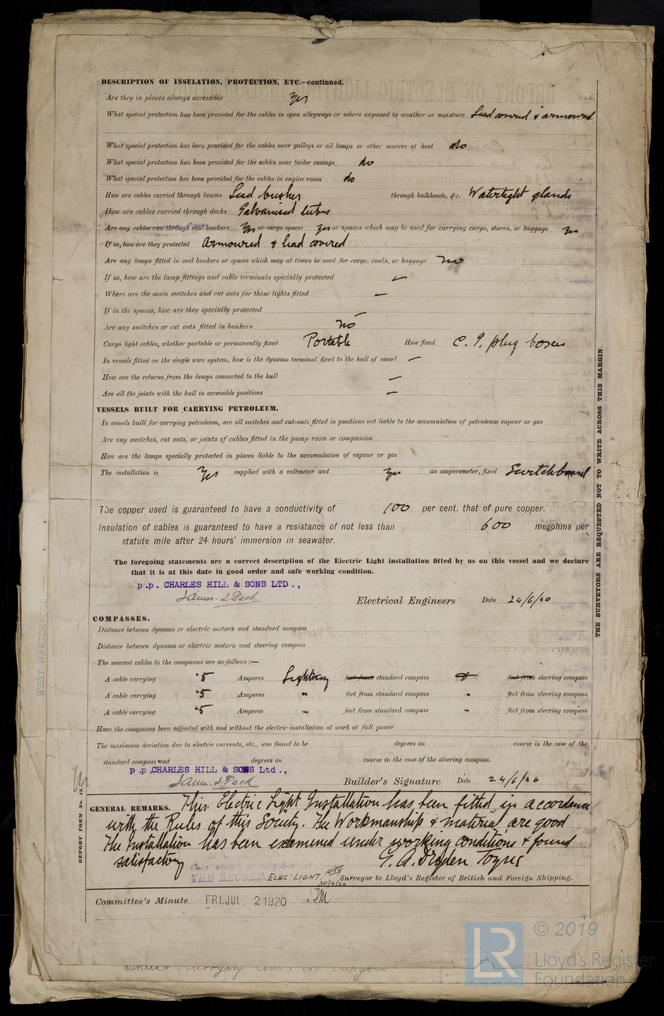 DESCRIPTION OF INSULATION, PROTECTION, ETC.—continued.
Are they in places always accessible Yes
What special protection has been provided for the cables in open alleyways or where exposed to weather or moisture Lead covered & armoured
What special protection has been provided for the cables near galleys or oil lamps or other sources of heat do
What special protection has been provided for the cables near boiler casings do
What special protection has been provided for the cables in engine room do
How are cables carried through beams Lead bushes through bulkheads, &c. Watertight glands
How are cables carried through decks Galvanised tubes
Are any cables run through coal bunkers Yes or cargo spaces yes or spaces which may be used for carrying cargo, stores, or baggage yes
If so, how are they protected Armoured & lead covered
Are any lamps fitted in coal bunkers or spaces which may at times be used for cargo, coals, or baggage no
If so, how are the lamp fittings and cable terminals specially protected —
Where are the main switches and cut outs for these lights fitted —
If in the spaces, how are they specially protected —
Are any switches or cut outs fitted in bunkers no
Cargo light cables, whether portable or permanently fixed Portable How fixed C.I. plug boxes
In vessels fitted on the single wire system, how is the dynamo terminal fixed to the hull of vessel —
How are the returns from the lamps connected to the hull —
Are all the joints with the hull in accessible positions —
VESSELS BUILT FOR CARRYING PETROLEUM.
In vessels built for carrying petroleum, are all switches and cut-outs fitted in positions not liable to the accumulation of petroleum vapour or gas
Are any switches, cut outs, or joints of cables fitted in the pump room or companion
How are the lamps specially protected in places liable to the accumulation of vapour or gas
The installation is Yes supplied with a voltmeter and Yes an amperemeter, fixed Switchboard
The copper used is guaranteed to have a conductivity of 100 per cent. that of pure copper.
Insulation of cables is guaranteed to have a resistance of not less than 600 megohms per
statute mile after 24 hours' immersion in seawater.
The foregoing statements are a correct description of the Electric Light installation fitted by us on this vessel and we declare
that it is at this date in good order and safe working condition.
p.p. CHARLES HILL & SONS LTD.,
Electrical Engineers Date 24/6/20
COMPASSES.
Distance between dynamo or electric motors and standard compass
Distance between dynamo or electric motors and steering compass
The nearest cables to the compasses are as follows:—
A cable carrying .5 Amperes Lighting feet from standard compass feet from steering compass
A cable carrying .5 Amperes " feet from standard compass " feet from steering compass
A cable carrying .5 Amperes " feet from standard compass " feet from steering compass
Have the compasses been adjusted with and without the electric installation at work at full power
The maximum deviation due to electric currents, etc., was found to be degrees on course in the case of the
standard compass and degrees on course in the case of the steering compass.
p.p CHARLES HILL & SONS Ltd.,
Builder's Signature Date 24/6/20
GENERAL REMARKS. This Electric Light Installation has been fitted in accordance
with the Rules of this Society. The Workmanship & material are good
The Installation has been examined under working conditions & found
satisfactory
THE RECORD ELEC: LIGHT. 30/6/20 Surveyor to Lloyd's Register of British and Foreign Shipping.
Committee's Minute FRI. JUL. 2 1920
THE SURVEYORS ARE REQUESTED NOT TO WRITE ACROSS THIS MARGIN.
© 2019
LR Lloyd's Register
Foundation